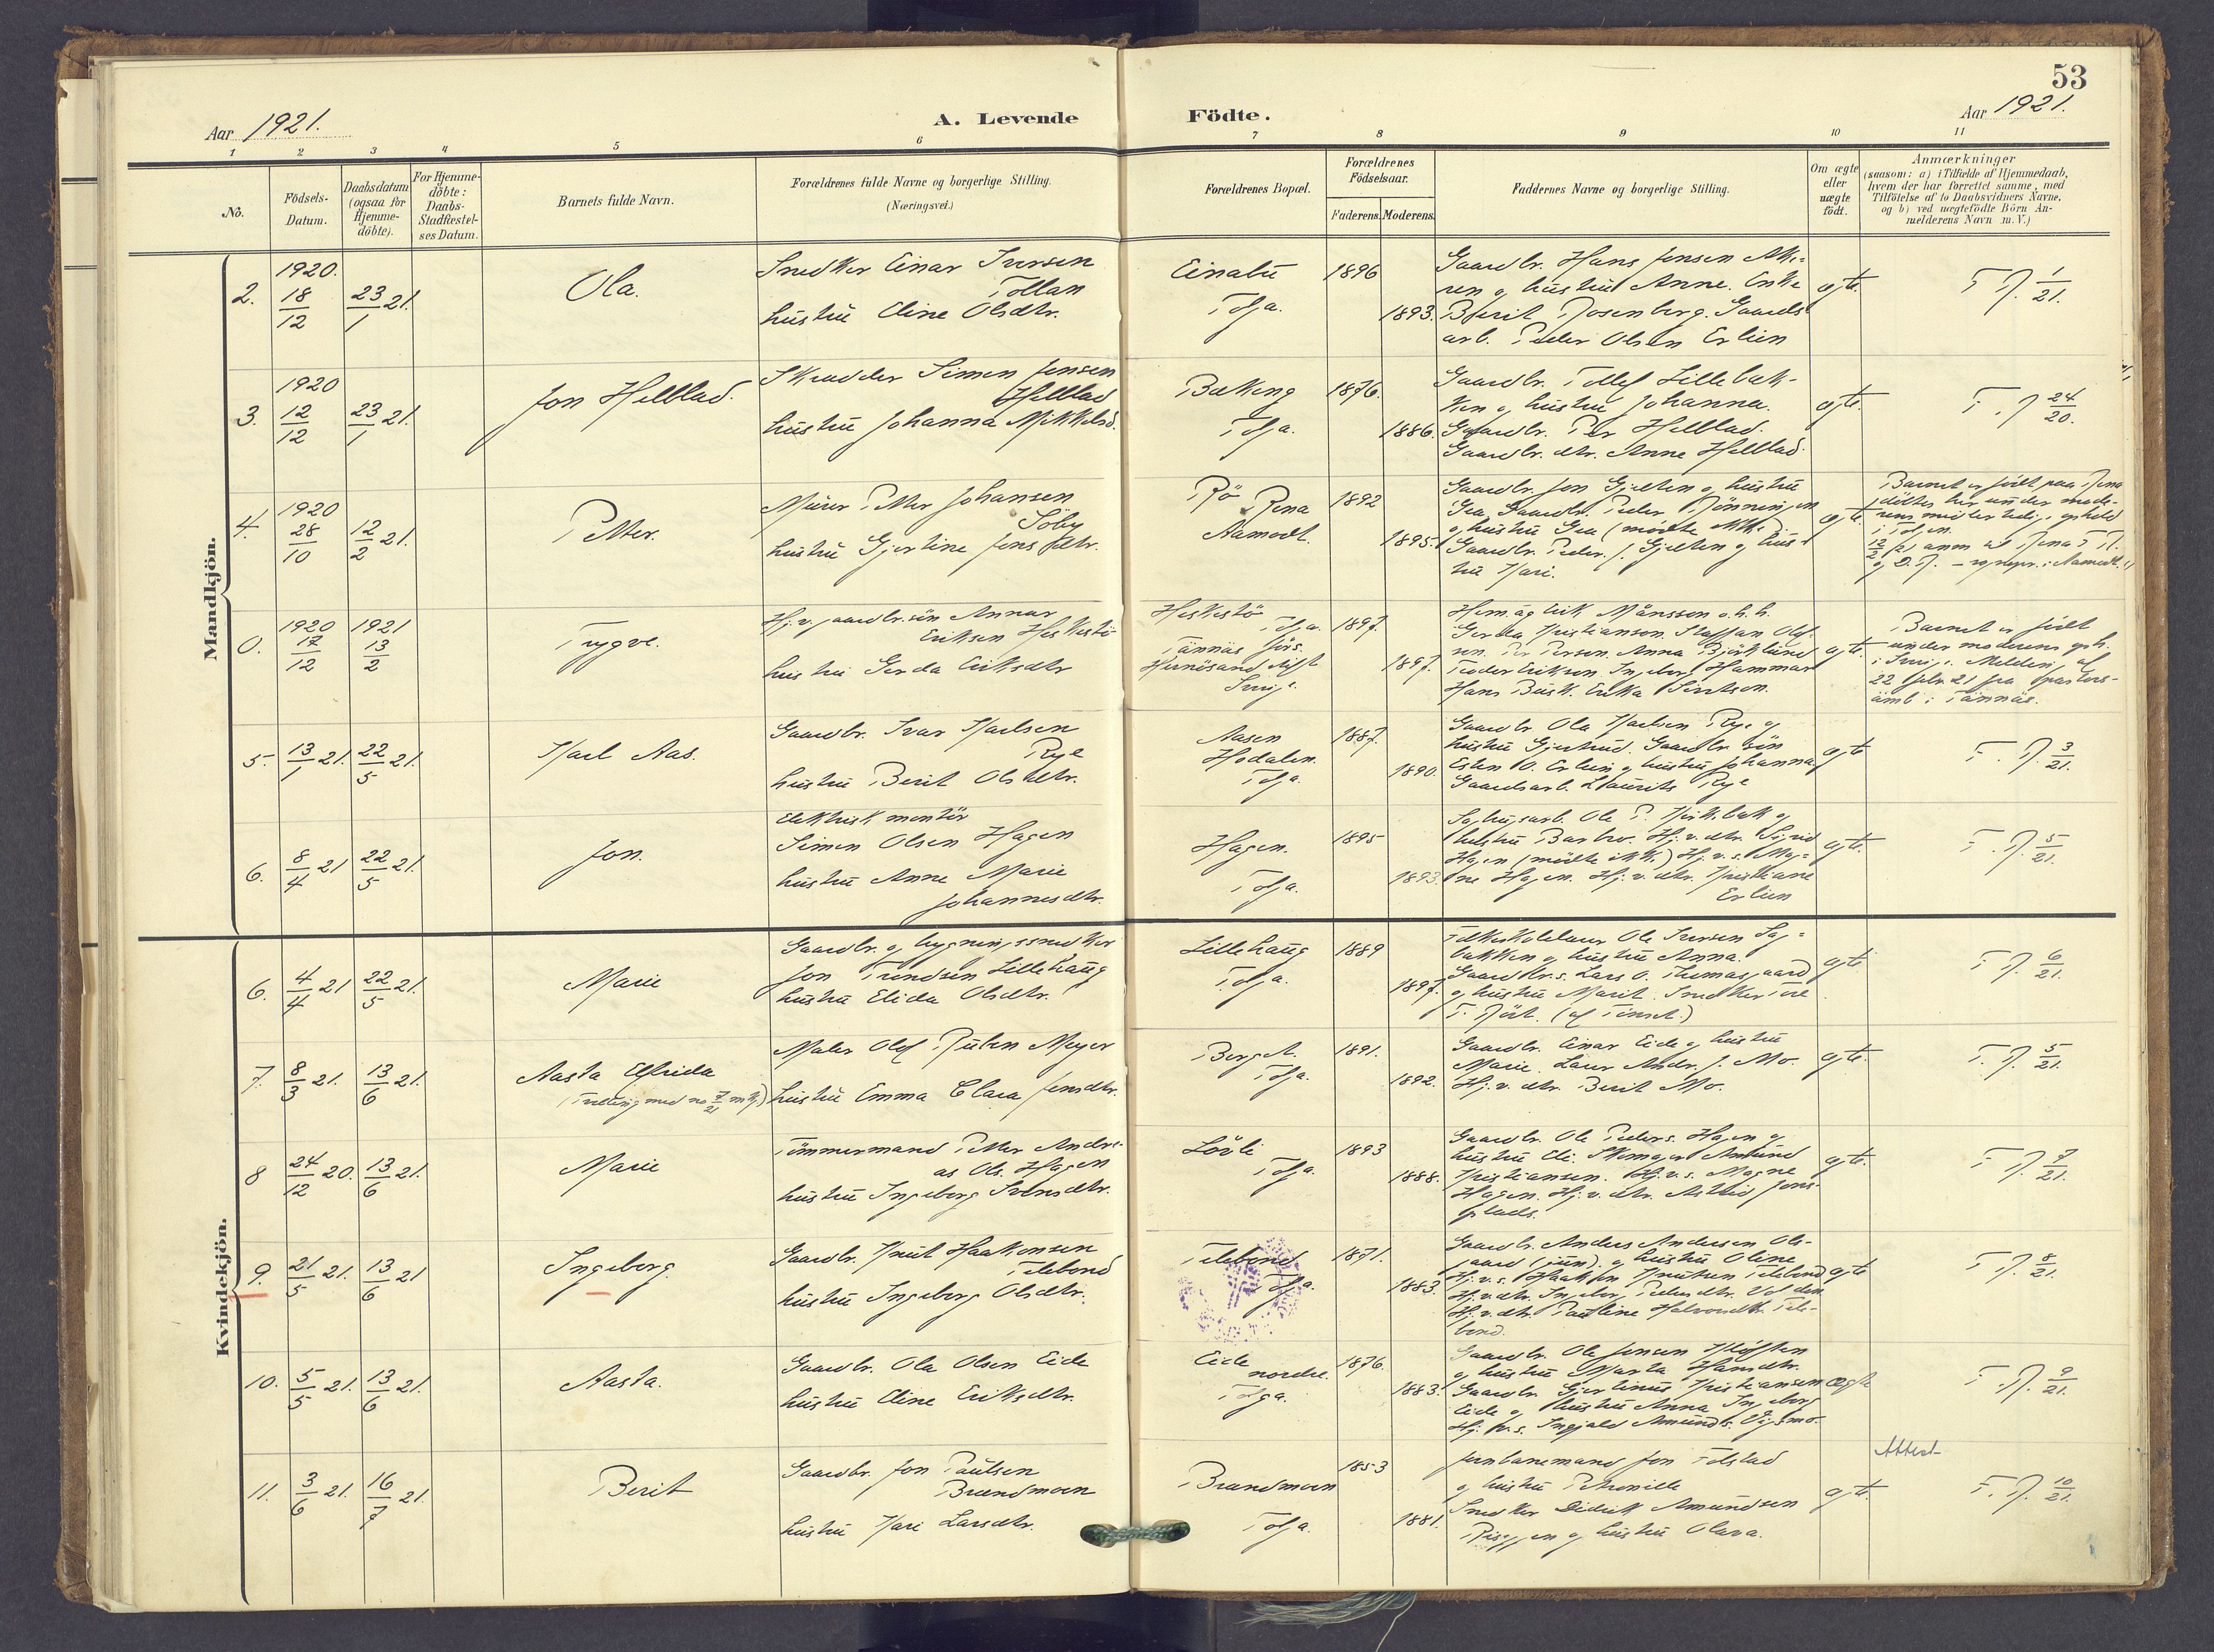 53
Aar 1921.
A. Levende
Födte.
Aar 1921.
1 2 3 4 5 6 7 8 9 10 11
No.
Födsels-
Datum.
Daabsdatum
(ogsaa for
Hjemme-
döbte).
For Hjemme-
döbte:
Daabs-
Stadfæstel-
ses Datum.
Barnets fulde Navn.
Forældrenes fulde Navne og borgerlige Stilling.
(Næringsvei.)
Forældrenes Bopæl.
Forældrenes
Födselsaar.
Faderens. Moderens.
Faddernes Navne og borgerlige Stilling.
Om ægte
eller
uægte
födt.
Anmærkninger
(saasom: a) i Tilfælde af Hjemmedaab,
hvem der har forrettet samme, med
Tilföielse af to Daabsvidners Navne,
og b) ved uægtefödte Börn An-
melderens Navn m. V.)
Mandkjön.
2.
1920.
18/12
23/1 21.
Ola.
Snedker Einar Iversen
Tollan
hustru Eline Olsdtr.
Einabu
Tolga.
1896
1893.
Gaardbr. Hans Jensen
og hustru Anne. Enke
Berit Rosenberg. Gaards
arb. Peder Olsen Erlien
ægte.
F. R. 1/21.
3.
1920
12/12
23/1 21.
Jon Helblad.
Skrædder Simen Jensen
Helblad
hustru Johanna Mikkelsd.
Bækeng
Tolga.
1876.
1886.
Gaardbr. Tollef Lillebak-
ken og hustru Johanna.
Gaardbr. Per Helblad.
Gaardbr. dtr. Anne Helblad.
ægte.
F. R. 24/20.
4.
1920
28/10
12/2 21.
Petter.
Murer Petter Johansen
Söby
hustru Gjertine Jensdtr.
Rö Rena
Aamodt.
1892
1895.
Gaardbr. Jon Gjelten og hustru
Gea. Gaardbr. Peder Rönningen
og hustru Gea (mödte ikke.)
Gaardbr. Peder J. Gjelten og hus-
tru Kari.
ægte.
Barnet er födt paa Rena
döbtes her under mode-
rens midlertidige ophold
i Tolgen.
12/2 21 anm. til Rena F. R.
og D. R.
0.
1920
17/12
1921
13/2
Trygve.
Hj. v. gaardbr. sön Annar
Eriksen Heskestö
hustru Gerda Eriksdtr
Heskestö
Tolga.
Tännäs förs.
Hernösand stift
Sverige.
1897.
1897.
Hem. äg. Erik Månsson o. h. h.
Gerda Kristianson. Staffan Olof-
son. Per Person. Anna Björklund
Teodor Erikson. Ingeborg Hammar
Hans Busk. Erika Sivertson.
ægte.
Barnet er födt
under moderens oph.
i Sverige. Melding af
22 febr. 21 fra pastors-
ämb. i Tännäs.
5.
13/1 21.
22/5 21.
Karl Aas.
Gaardbr. Ivar Karlsen
Rye
hustru Berit Olsdtr.
Aasen
Hodalen.
Tolga.
1887.
1890.
Gaardbr Ola Karlsen Rye og
hustru Gjertrud. Gaardbr. sön
Esten O. Erlien og hustru Johanna
Gaardsarb. Laurits Rye
ægte
F. R. 3/21.
6.
8/4 21
22/5 21.
Jon.
Elektrisk montör
Simen Olsen Hagen
hustru Anne Marie
Johannesdtr.
Hagen.
Tolga.
1895
1893.
Sagbrugsarb. Ole P. Kirkbak og
hustru Barbro. Hj. v. dtr. Sigrid
Hagen (mödte ikke.) Hj. v. s. Mag-
ne Hagen. Hj. v. dtr. Kristiane
Erlien
ægte.
F. R. 5/21.
Kvindekjön.
6.
4/4 21
22/5 21.
Marie
Gaardbr. og bygningssnedker
Jon Trondsen Lillehaug
hustru Elida Olsdtr.
Lillehaug
Tolga.
1889
1897.
Folkeskolelærer Ole Iversen Sag-
bakken og hustru Anna.
Gaardbr. s. Lars O. Thomasgaard
og hustru Marit. Snedker Tore
T. Röst. (af Tönset.)
ægte.
F. R. 6/21.
7.
8/3 21.
13/6 21.
Aasta Elfrida
(Tvilling med no 7/21 mkj.)
Maler Olef Ruben Meyer
hustru Emma Clara Jensdtr.
Berget.
Tolga.
1891.
1892.
Gaardbr. Einar Eide og hustru
Marie. Lærer Andr. J. Mo.
Hj. v. dtr. Berit Mo.
ægte.
F. R. 5/21.
8
24/12 20.
13/6 21.
Marie
Tömmermand Petter Andre-
as Ols. Hagen
hustru Ingeborg Svensdtr.
Lövli
Tolga.
1893
1888.
Gaardbr. Ole Peders. Hagen og
hustru Eli. Skomager Amund
Kristiansen. Hj. v. s. Magne
Hagen. Hj. v. dtr. Astrid Jons-
plads.
ægte.
F. R. 7/21.
9.
21/5 21.
13/6 21
Ingeborg.
Gaardbr. Knut Haakonsen
Telebond
hustru Ingeborg Olsdtr.
Telebond
Tolga.
1871.
1883.
Gaardbr. Anders Andersen Ols-
gaard (jun). og hustru Oline
Hj. v. s. Haakon Knutsen Telebond
Hj. v. dtr. Ingeborg Pedersdtr. Volden
Hj. v. dtr. Pauline Halvorsdtr. Tele-
bond.
ægte
F. R. 8/21.
10.
5/5 21.
13/6 21.
Aasta.
Gaardbr. Ola Olsen Eide
hustru Eline Eriksdtr.
Eide
nordre.
Tolga.
1876.
1883.
Gaardbr. Ole Jensen Klöften
og hustru Marta Hansdtr.
Gaardbr. Gjertinus Kristiansen
Eide og hustru Anna Ingeborg
Hj. v. s. Ingjald Amunds. Vigsmo.
ægte
F. R. 9/21.
11.
3/6 21.
16/7 21.
Berit
Gaardbr. Jon Paulsen
Brændmoen
hustru Kari Larsdtr.
Brændmoen
Tolga.
1853
1881.
Jernbanemand Jon Tolstad
og hustru Petronille
Snedker Didrik Amundsen
og hustru Olava.
ægte.
Attest
F. R. 10/21.